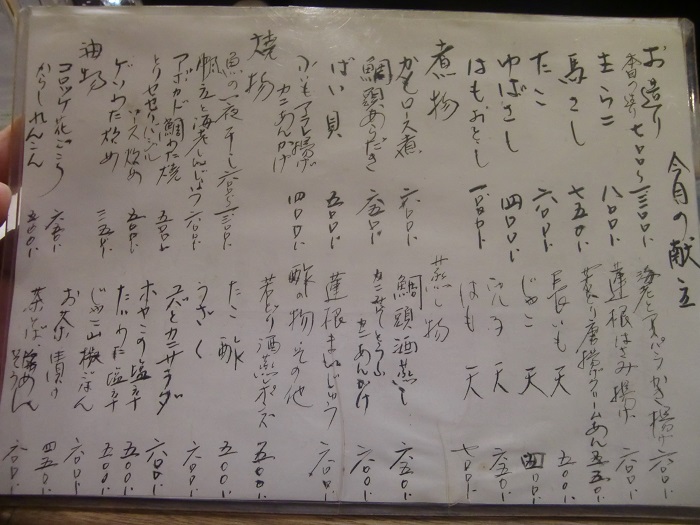 今月の献立
お造り
本日のお造り 七〇〇〜一三〇〇
生うに 八〇〇
馬さし 七五〇
たこ 六〇〇
ゆばさし 四〇〇
はもおとし 一〇〇〇
煮物
かもロース煮 六〇〇
鯛頭あらだき 六五〇
ばい貝 五〇〇
小いもアラレ揚げ
カニあんかけ 四〇〇
焼物
魚の一夜干し 六〇〇〜一三〇〇
帆立と海老しんじょう 六〇〇
アボカド鯛わた焼 五〇〇
とりせせりバジル
ソース炒め 五〇〇
ゲソわた炒め 三五〇
油物
コロッケ花ごころ 六五〇
からしれんこん 五〇〇
海老とアスパラかき揚げ 六〇〇
蓮根はさみ揚げ 六〇〇
若どり唐揚クリームあん 五五〇
長いも天 五〇〇
じゃこ天 四〇〇
穴子天 六五〇
はも天 七〇〇
蒸し物
鯛頭酒蒸し 六五〇
カニあんかけ 六〇〇
蓮根まんじゅう 六〇〇
酢の物その他
若どり酒蒸しポン酢 五〇〇
たこ酢 五〇〇
うざく 六〇〇
エビとカニサラダ 六〇〇
塩辛 五〇〇
たいわた塩辛 五〇〇
じゃこ山椒ごはん 六〇〇
お茶漬け 四五〇
茶そば
そうめん 六〇〇